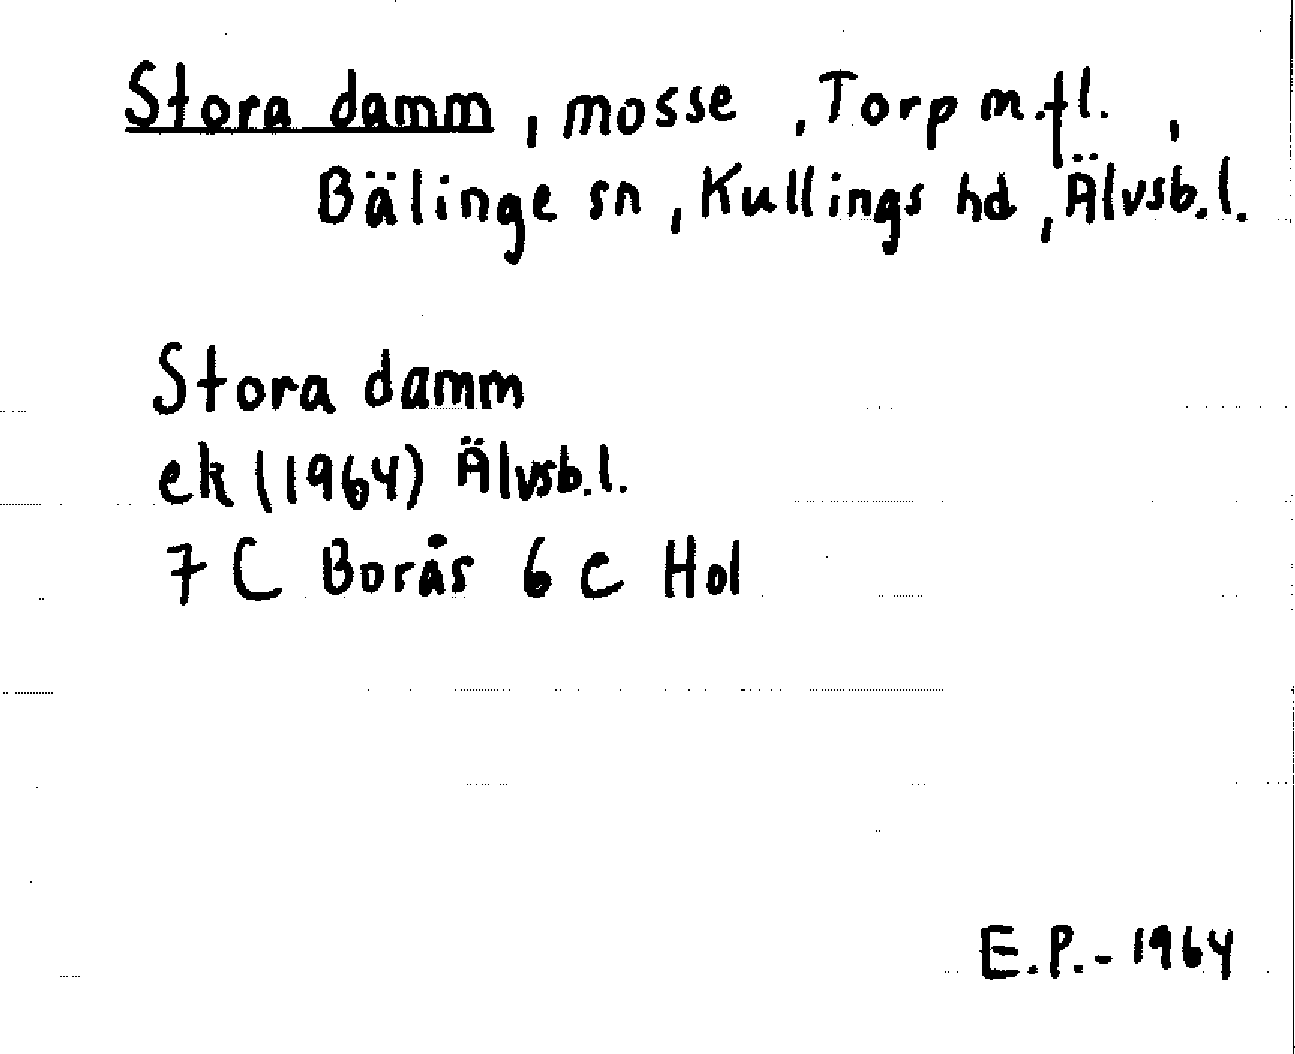 Stora damm, mosse, Torp m.fl.,
Bälinge sn, Kullings hd, Älvsb.l.
Stora damm
ek (1964) Älvsb.l.
7 C Borås 6 c Hol
E.P.-1964